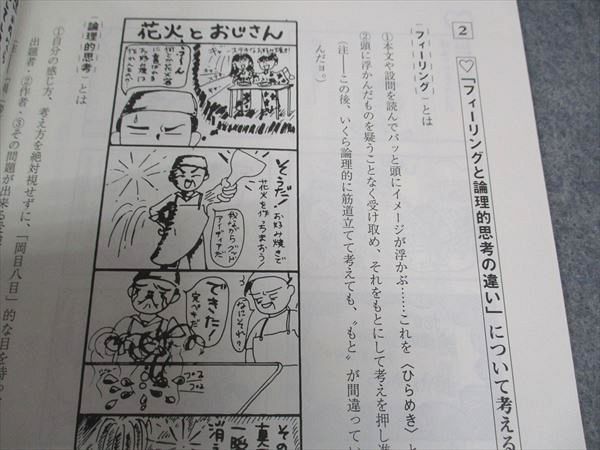 2
♡「フィーリングと論理的思考の違い」について考える
「フィーリング」とは
①本文や設問を読んでパッと頭にイメージが浮かぶ……これを〈ひらめき〉と
②頭に浮かんだものを疑うことなく受け取め、それをもとにして考えを押し進
(注――この後、いくら論理的に筋道立てて考えても、〝もと〟が間違ってい
んだョ。)
花火とおじさん
う～ん
そうだ！
お好み焼きで
花火を作っちまおう！
我ながらグッド
アイディアだ
なにそれ？
できた
完ペキだ
その
真
一瞬
消
「論理的思考」とは
①自分の感じ方、考え方を絶対視せずに、「岡目八目」的な目を持っ
出題者 ②作者・③その問題が出来る